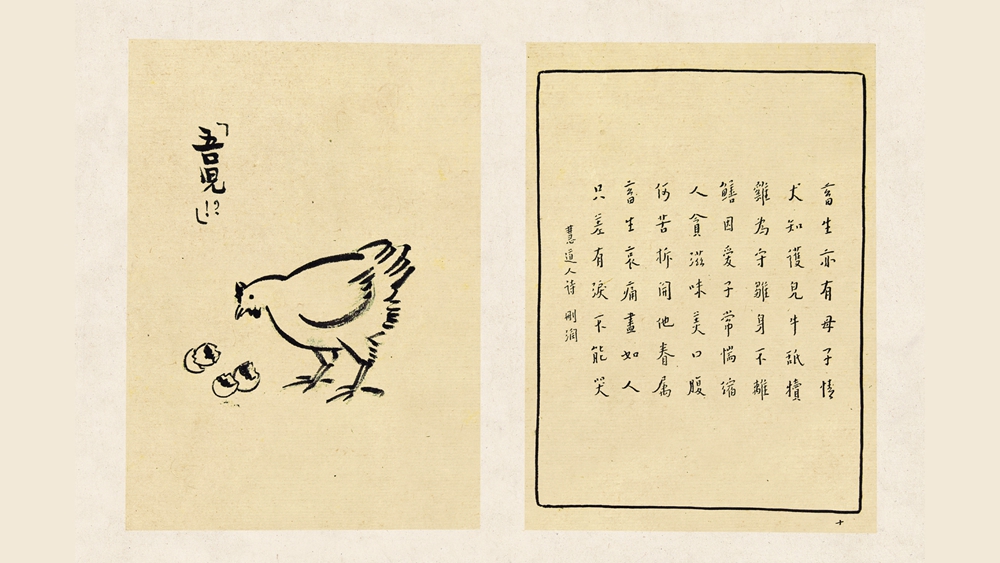 「吾兒!?」
畜生亦有母子情
犬知護兒牛舐犢
雞為守雛身不離
鱔因愛子常惴縮
人貪滋味美口腹
何苦拆開他眷屬
畜生哀痛盡如人
只差有淚不能哭
慧道人詩 刪潤
十